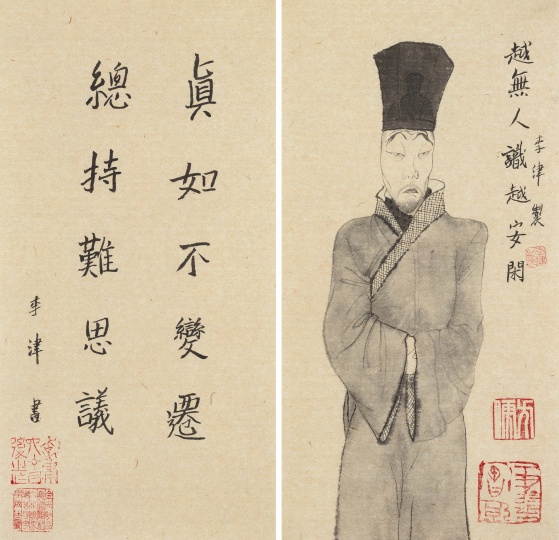 真如不變遷
總持難思議
李津書
越無人識越安閑
李津製